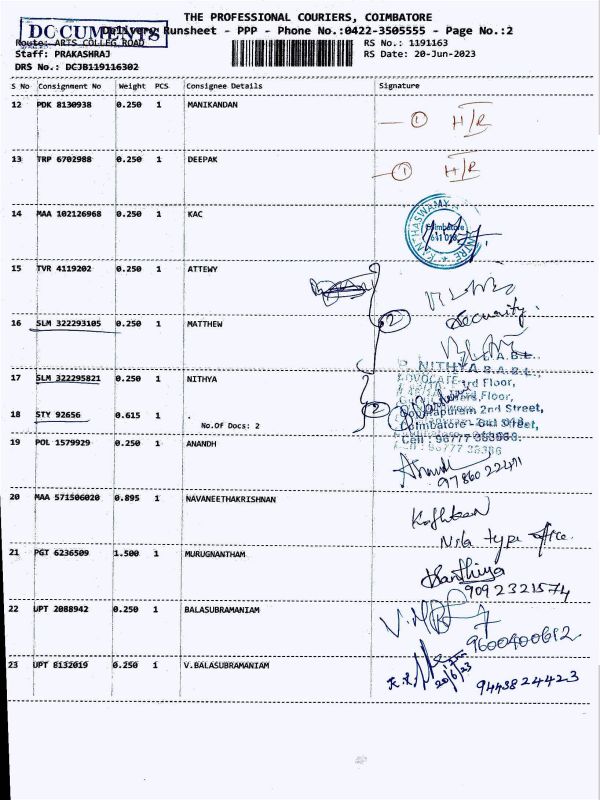 THE PROFESSIONAL COURIERS, COIMBATORE
DOCUMENTS
Delivery Runsheet - PPP - Phone No.:0422-3505555 - Page No.:2
Route: ARTS COLLEG ROAD RS No.: 1191163
Staff: PRAKASHRAJ RS Date: 20-Jun-2023
DRS No.: DCJB119116302
S No Consignment No Weight PCS Consignee Details Signature
12 PDK 8130938 0.250 1 MANIKANDAN
1 H/R
13 TRP 6702988 0.250 1 DEEPAK
1 H/R
14 MAA 102126968 0.250 1 KAC
Coimbatore
641 018
15 TVR 4119202 0.250 1 ATTEWY
16 SLM 322293105 0.250 1 MATTHEW
2 Security.
17 SLM 322295821 0.250 1 NITHYA
NITHYA B.A.B.L.,
ADVOCATE
3rd Floor,
2nd Street,
Coimbatore
18 STY 92656 0.615 1 .
No.Of Docs: 2
2
19 POL 1579929 0.250 1 ANANDH
Anandh
20 MAA 571506020 0.895 1 NAVANEETHAKRISHNAN
Nila type office.
21 PGT 6236509 1.500 1 MURUGNANTHAM
9092321574
22 UPT 2088942 0.250 1 BALASUBRAMANIAM
9600400612
23 UPT 8132019 0.250 1 V.BALASUBRAMANIAM
20/6/23
9443824423